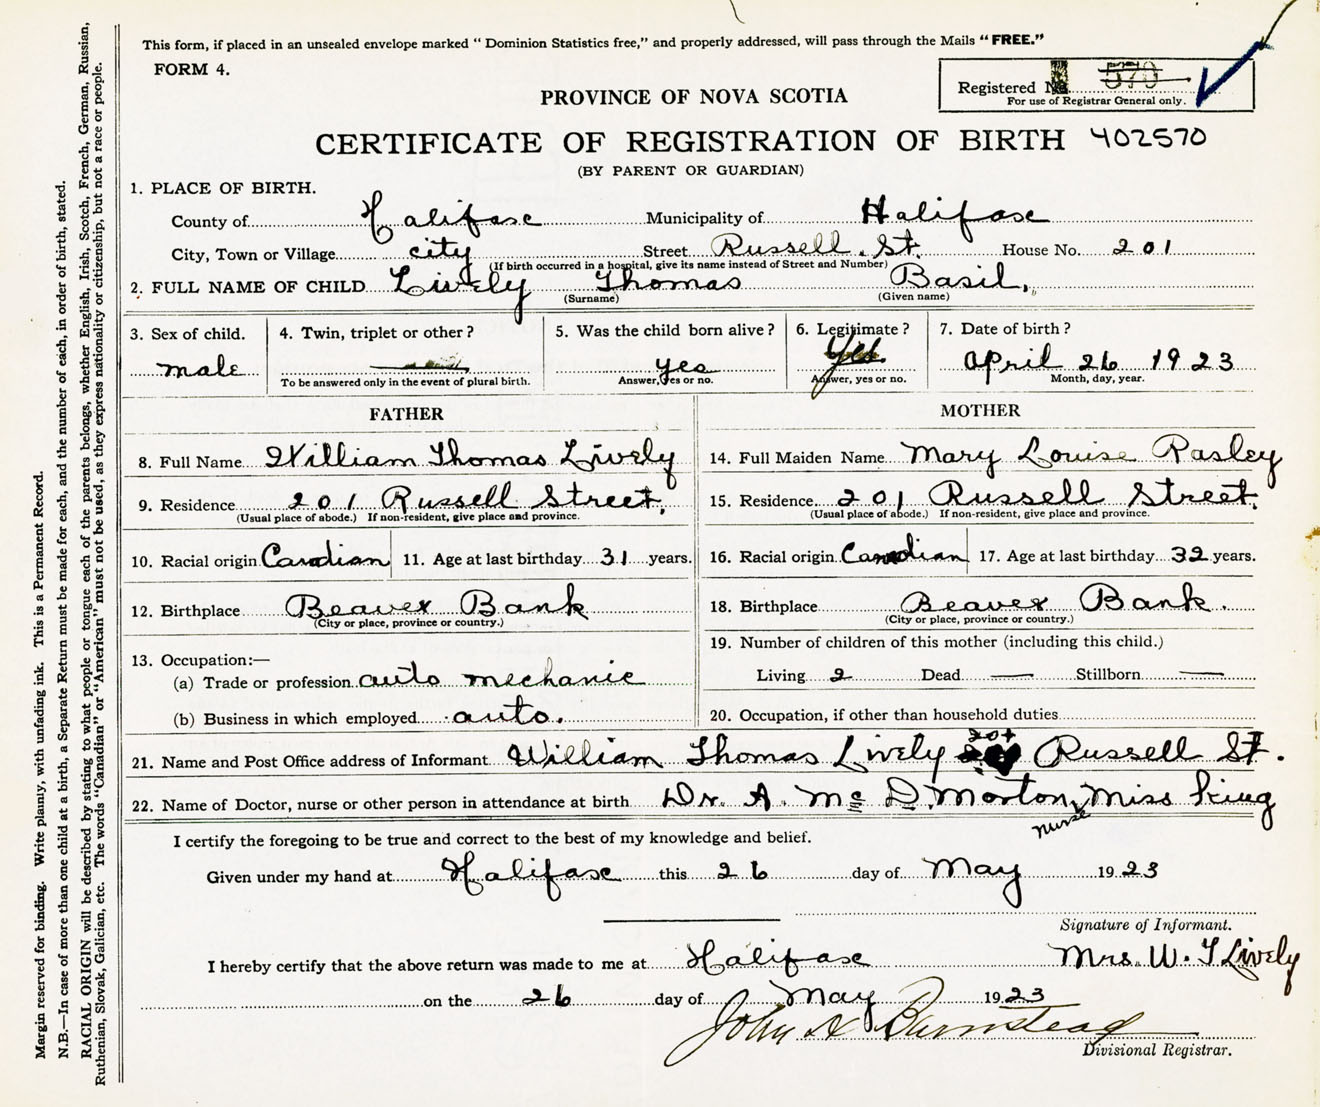 This form, if placed in an unsealed envelope marked " Dominion Statistics free," and properly addressed, will pass through the Mails "FREE."
FORM 4.
Registered No. 570
For use of Registrar General only.
PROVINCE OF NOVA SCOTIA
CERTIFICATE OF REGISTRATION OF BIRTH 402570
(BY PARENT OR GUARDIAN)
1. PLACE OF BIRTH.
County of Halifax Municipality of Halifax
City, Town or Village city Street Russell St. House No. 201
(If birth occurred in a hospital, give its name instead of Street and Number)
2. FULL NAME OF CHILD Lively Thomas Basil,
(Surname) (Given name)
3. Sex of child. 4. Twin, triplet or other? 5. Was the child born alive? 6. Legitimate? 7. Date of birth?
male yes Yes April 26 1923
To be answered only in the event of plural birth. Answer, yes or no. Answer, yes or no. Month, day, year.
FATHER MOTHER
8. Full Name William Thomas Lively 14. Full Maiden Name Mary Louise Pasley
9. Residence 201 Russell Street. 15. Residence 201 Russell Street.
(Usual place of abode.) If non-resident, give place and province. (Usual place of abode.) If non-resident, give place and province.
10. Racial origin Canadian 11. Age at last birthday 31 years. 16. Racial origin Canadian 17. Age at last birthday 32 years.
12. Birthplace Beaver Bank 18. Birthplace Beaver Bank.
(City or place, province or country.) (City or place, province or country.)
13. Occupation:— 19. Number of children of this mother (including this child.)
(a) Trade or profession auto mechanic Living 2 Dead — Stillborn —
(b) Business in which employed auto. 20. Occupation, if other than household duties
21. Name and Post Office address of Informant William Thomas Lively 201 Russell St.
22. Name of Doctor, nurse or other person in attendance at birth Dr. A. Mc D. Morton, Miss King
nurse
I certify the foregoing to be true and correct to the best of my knowledge and belief.
Given under my hand at Halifax this 26 day of May 1923
Signature of Informant.
I hereby certify that the above return was made to me at Halifax Mrs. W. T Lively
on the 26 day of May 1923
John A Barnstead
Divisional Registrar.
Margin reserved for binding. Write plainly, with unfading ink. This is a Permanent Record.
N.B.—In case of more than one child at a birth, a Separate Return must be made for each, and the number of each, in order of birth, stated.
RACIAL ORIGIN will be described by stating to what people or tongue each of the parents belongs, whether English, Irish, Scotch, French, German, Russian,
Ruthenian, Slovak, Galician, etc. The words "Canadian" or "American" must not be used, as they express nationality or citizenship, but not a race or people.